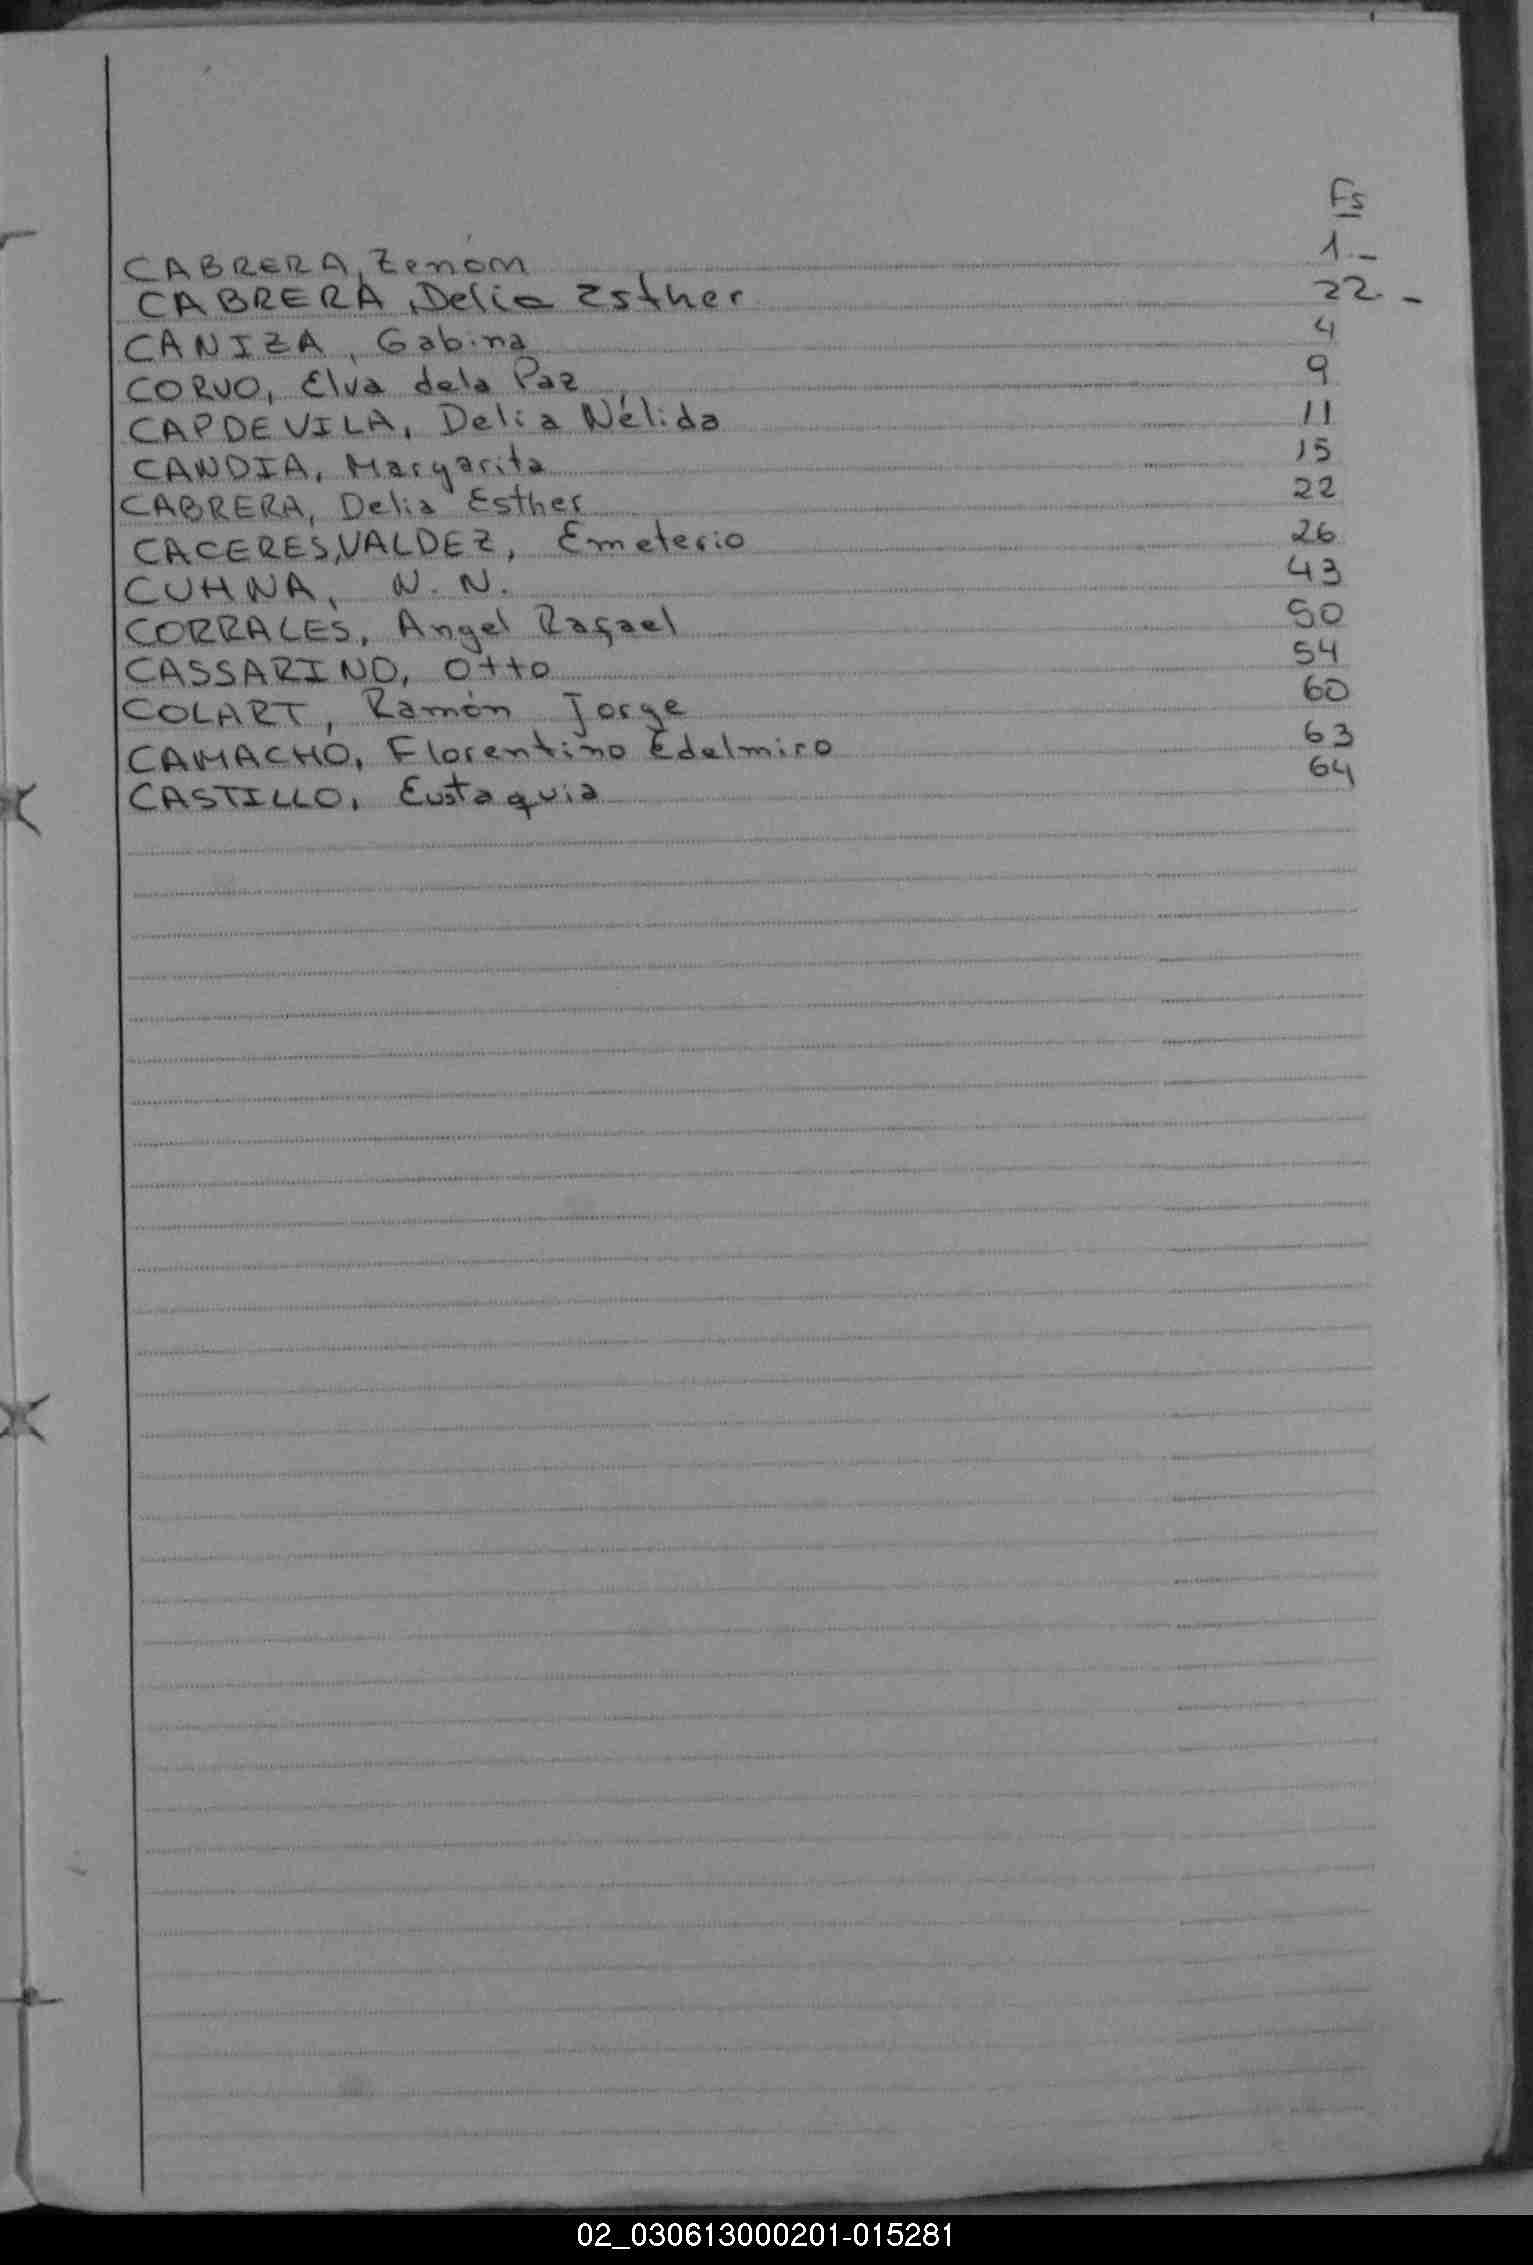 Fs
CABRERA, Zenóm 1.-
CABRERA, Delia Esther 22.-
CANIZA, Gabina 4
CORVO, Elva dela Paz 9
CAPDEVILA, Delia Nélida 11
CANDIA, Margarita 15
CABRERA, Delia Esther 22
CACERES,VALDEZ, Emeterio 26
CUHNA, N. N. 43
CORRALES, Angel Rafael 50
CASSARINO, Otto 54
COLART, Ramón Jorge 60
CAMACHO, Florentino Edelmiro 63
CASTILLO, Eustaquia 64
02_030613000201-015281